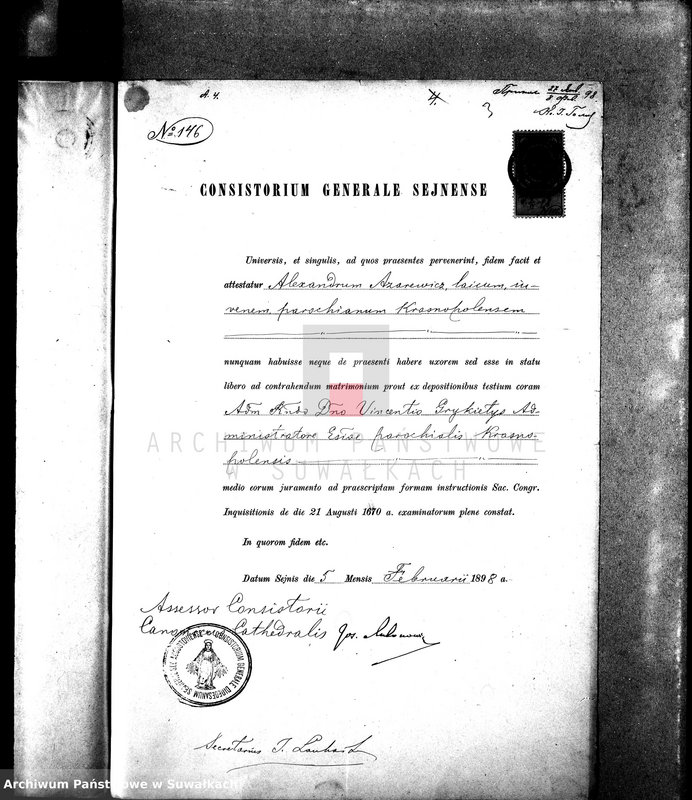 A. 4.
4.
№ 146
3
CONSISTORIUM GENERALE SEJNENSE
Universis, et singulis, ad quos praesentes pervenerint, fidem facit et
attestatur Alexandrum Azarewicz, laicum, iu-
venem, parochianum Krasnopolensem
nunquam habuisse neque de praesenti habere uxorem sed esse in statu
libero ad contrahendum matrimonium prout ex depositionibus testium coram
Adm Rndo Dno Vincentio Grykietys Ad-
ministratore Eccłae parochialis Krasno-
polensis
medio eorum juramento ad praescriptam formam instructionis Sac. Congr.
Inquisitionis de die 21 Augusti 1670 a. examinatorum plene constat.
In quorom fidem etc.
Datum Sejnis die 5 Mensis Februarii 1898 a.
Assessor Consistorii
Cathedralis Jos.
Secretarius J.
ARCHIWUM PAŃSTWOWE
W SUWAŁKACH
Archiwum Państwowe w Suwałkach